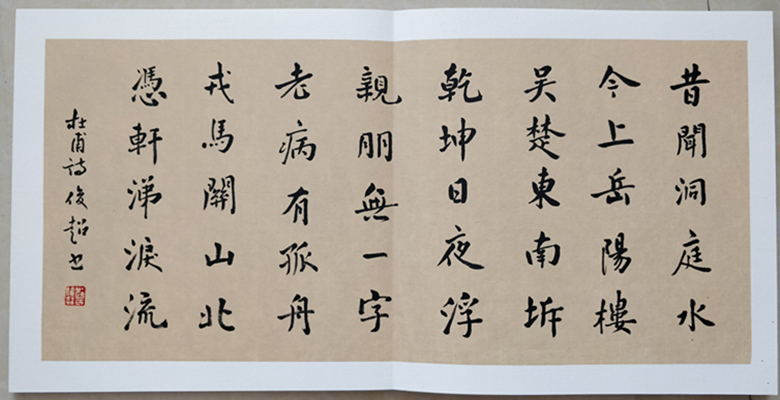 昔聞洞庭水
今上岳陽樓
吴楚東南坼
乾坤日夜浮
親朋無一字
老病有孤舟
戎馬關山北
憑軒涕淚流
杜甫詩俊超書